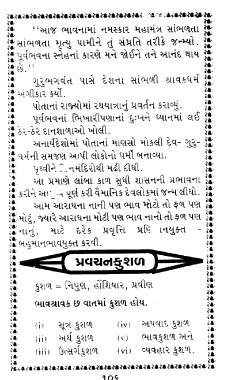 “આજ ભાવનામાં નમસ્કાર મહામંત્ર સાંભળતા
સાંભળતા મૃત્યુ પામીને તું સંપ્રતિ તરીકે જન્મ્યો.
પૂર્વભવના સ્નેહનાં કારણે મને જોઈને તને આનંદ થાય
છે.”
ગુરુભગવંત પાસે દેશના સાંભળી શ્રાવકધર્મ
અંગીકાર કર્યો.
પોતાનાં રાજ્યોમાં રથયાત્રાનું પ્રવર્તન કરાવ્યું.
પૂર્વભવનાં ભિખારીપણાનાં દુઃખને ધ્યાનમાં લઈ
ઠેર-ઠેર દાનશાળાઓ ખોલી.
અનાર્યદેશોમાં પોતાનાં માણસો મોકલી દેવ-ગુરુ-
ધર્મની સમજણ આપી લોકોને ધર્મી બનાવ્યા.
પૃથ્વીને જિનમંદિરોથી મઢી દીધી.
આ પ્રમાણે લાંબા કાળ સુધી શાસનની પ્રભાવના
કરીને આયુ પૂર્ણ કરી વૈમાનિક દેવલોકમાં જન્મ લીધો.
આમ આરાધના નાની પણ ભાવ મોટો તો ફળ પણ
મોટું, જ્યારે આરાધના મોટી પણ ભાવ નાનો તો ફળ પણ
નાનું. માટે દરેક પ્રવૃત્તિ પ્રણિધાનયુક્ત -
બહુમાનભાવયુક્ત કરવી.
પ્રવચનકુશળ
કુશળ = નિપુણ, હોંશિયાર, પ્રવીણ
ભાવશ્રાવક છ વાતમાં કુશળ હોય.
(i) સૂત્ર કુશળ (iv) અપવાદ કુશળ
(ii) અર્થ કુશળ (v) ભાવકુશળ અને
(iii) ઉત્સર્ગકુશળ (vi) વ્યવહાર કુશળ.
૧૦૬